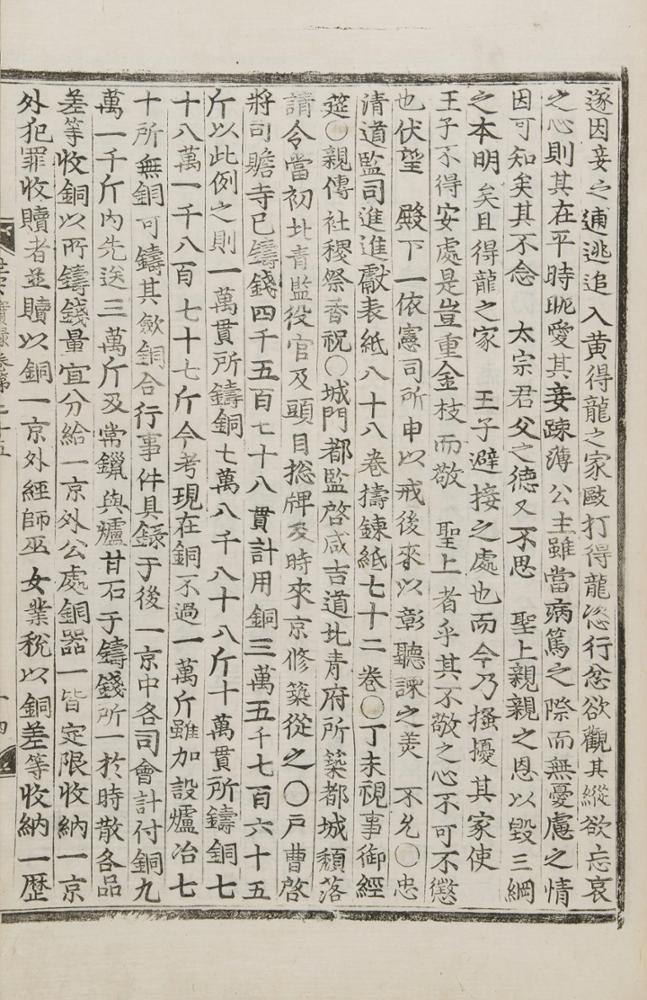 遂因妾之逋逃追入黃得龍之家毆打得龍恣行忿欲觀其縱欲忘哀
之心則其在平時昵愛其妾踈薄公主雖當病篤之際而無憂慮之情
因可知矣其不念 太宗君父之德又不思 聖上親親之恩以毀三綱
之本明矣且得龍之家 王子避接之處也而今乃搔擾其家使
王子不得安處是豈重金枝而敬 聖上者乎其不敬之心不可不懲
也伏望 殿下一依憲司所申以戒後來以彰聽諫之美 不允○忠
清道監司進進獻表紙八十八卷擣鍊紙七十二卷○丁未視事御經
筵○親傳社稷祭香祝○城門都監啓咸吉道北靑府所築都城頹落
請令當初北靑監役官及頭目摠牌及時來京修築從之○戶曹啓
將司贍寺已鑄錢四千五百七十八貫計用銅三萬五千七百六十五
斤以此例之則一萬貫所鑄銅七萬八千八十八斤十萬貫所鑄銅七
十八萬一千八百七十七斤今考現在銅不過一萬斤雖加設爐冶七
十所無銅可鑄其歛銅合行事件具錄于後一京中各司會計付銅九
萬一千斤內先送三萬斤及常鑞與爐甘石于鑄錢所一於時散各品
差等收銅以所鑄錢量宜分給一京外公處銅器一皆定限收納一京
外犯罪收贖者並贖以銅一京外經師巫女業稅以銅差等收納一歷
實錄卷第二十五
十四